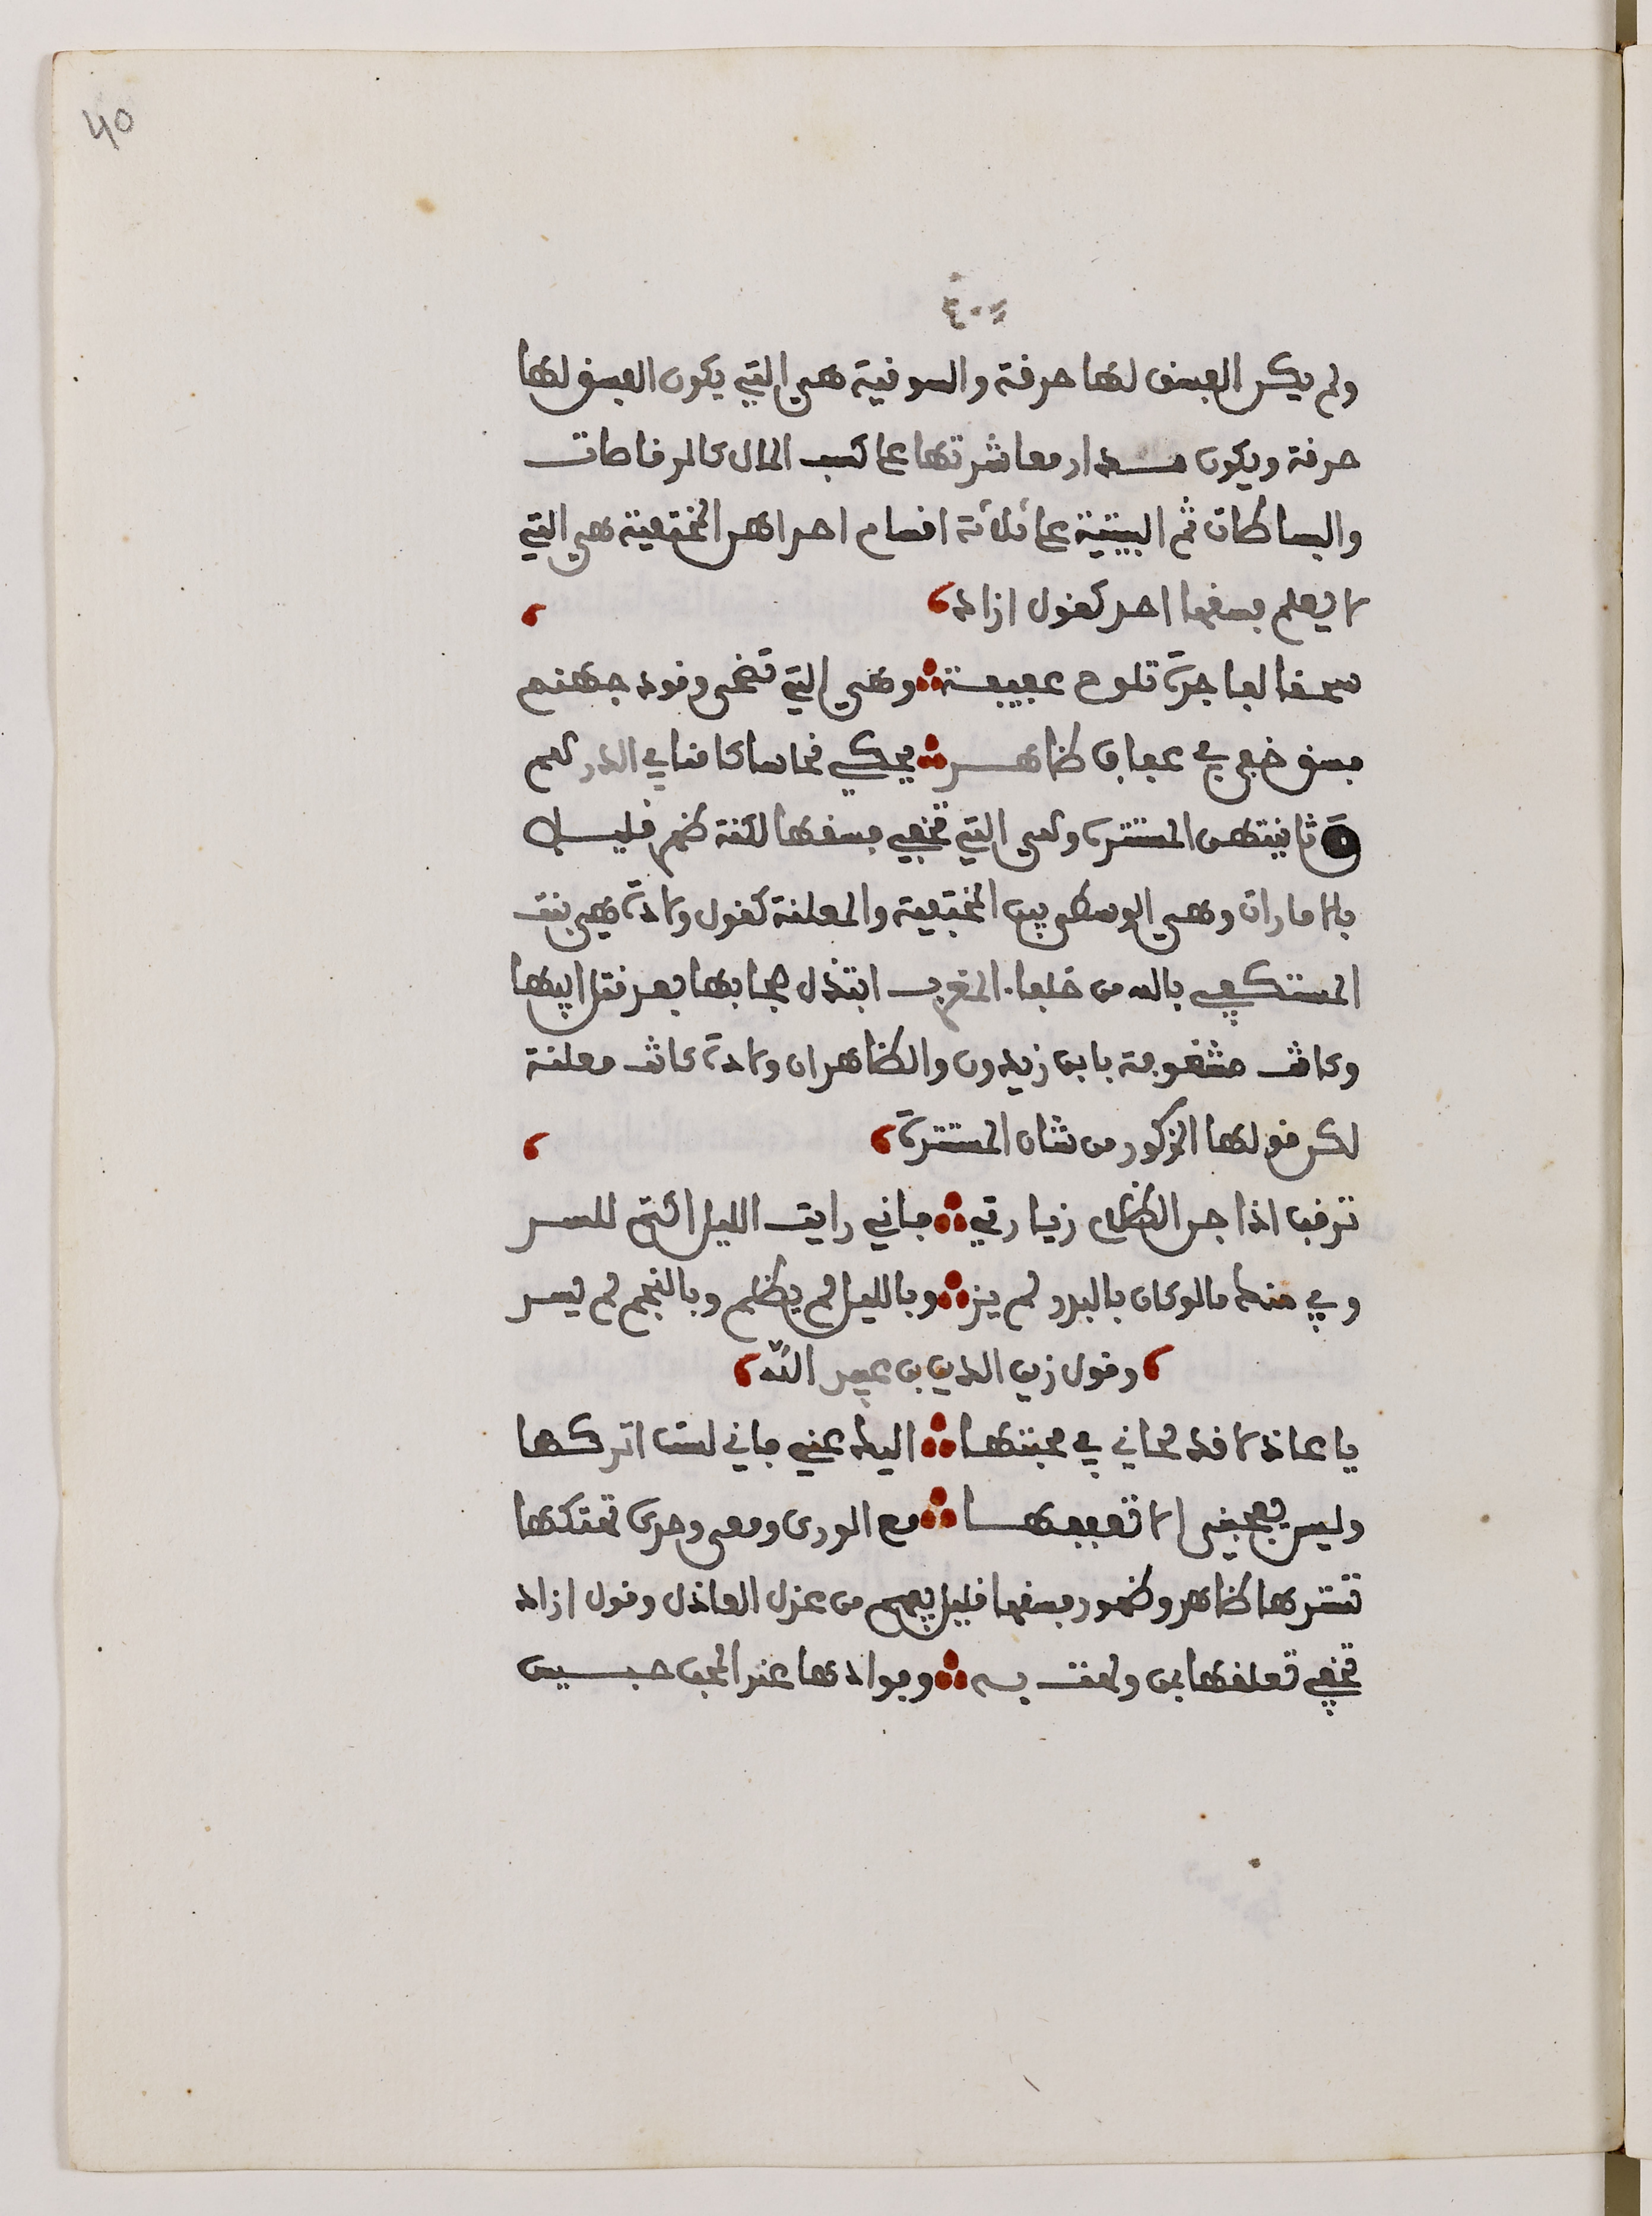 40
٤٠
ولم يكن الفسق لها حرفة والسوقية هي التي يكون الفسق لها
حرفة ويكون مدار معاشرتها على كسب المال كالرقاصات
والبساطات ثم البيتية على ثلاثة اقسام احداهن المختفية هي التي
لا يعلم بفسقها احد كقول ازاد
سحقا لفاجرة تلوح عفيفة وهي التي تضحى وقود جهنم
فسق خفي في عفاف ظاهر يحكي نحاسا كامنا في الدرهم
ثانيتهن المستترة وهي التي تخفي فسقها لكنه ظهر قليل
بالامارات وهي الوسطى بين المختفية والمعلنة كقول ولادة هي بنت
المستكفي بالله من خلفاء المغرب ابتذل حجابها بعد قتل ابيها
وكانت مشغوفة بابن زيدون والظاهر ان ولادة كانت معلنة
لكن قولها المذكور من شان المستترة
ترقب اذا جن الظلام زيارتي فاني رايت الليل اكتم للسر
وبي منك ما لو كان بالبدر لم ينر وبالليل لم يظلم وبالنجم لم يسر
وقول زين الدين بن عبيد الله
يا عاذلا قد لحاني في محبتها اليك عني فاني لست اتركها
وليس يعجبني الا تعففها مع الورى ومعي وحدي تهتكها
تسترها ظاهر وظهور فسقها قليل يفهم من عذل العاذل وقول ازاد
تخفي تعلقها بمن ولعت به وفوادها عند المحب حبيس